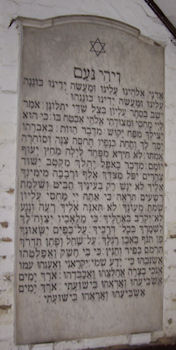 ויהי נעם
אדני אלהינו עלינו ומעשה ידינו כוננה
עלינו ומעשה ידינו כוננהו
ישב בסתר עליון בצל שדי יתלונן: אמר
ליי מחסי ומצודתי אלהי אבטח בו: כי הוא
יצילך מפח יקוש מדבר הוות: באברתו
יסך לך ותחת כנפיו תחסה צנה וסוחרה
אמתו: לא תירא מפחד לילה מחץ יעוף
יומם: מדבר באפל יהלך מקטב ישוד
צהרים: יפל מצדך אלף ורבבה מימינך
אליך לא יגש רק בעיניך תביט ושלמת
רשעים תראה כי אתה יי מחסי עליון
שמת מעונך: לא תאנה אליך רעה ונגע
לא יקרב באהלך: כי מלאכיו יצוה לך
לשמרך בכל דרכיך: על כפים ישאונך
פן תגף באבן רגלך: על שחל ופתן תדרך
תרמס כפיר ותנין: כי בי חשק ואפלטהו
אשגבהו כי ידע שמי יקראני ואענהו עמו
אנכי בצרה אחלצהו ואכבדהו: ארך ימים
אשביעהו ואראהו בישועתי: ארך ימים
אשביעהו ואראהו בישועתי: